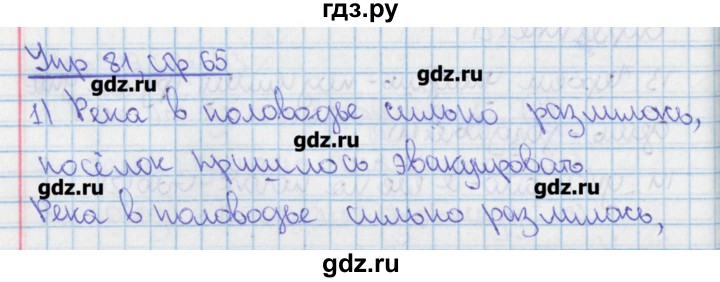 гдз.ру
Упр 81, стр 65
gdz.ru gdz.ru
1) Река в половодье сильно разлилась,
gdz.ru
посёлок пришлось эвакуировать.
gdz.ru gdz.ru
Река в половодье сильно разлилась,
gdz.ru